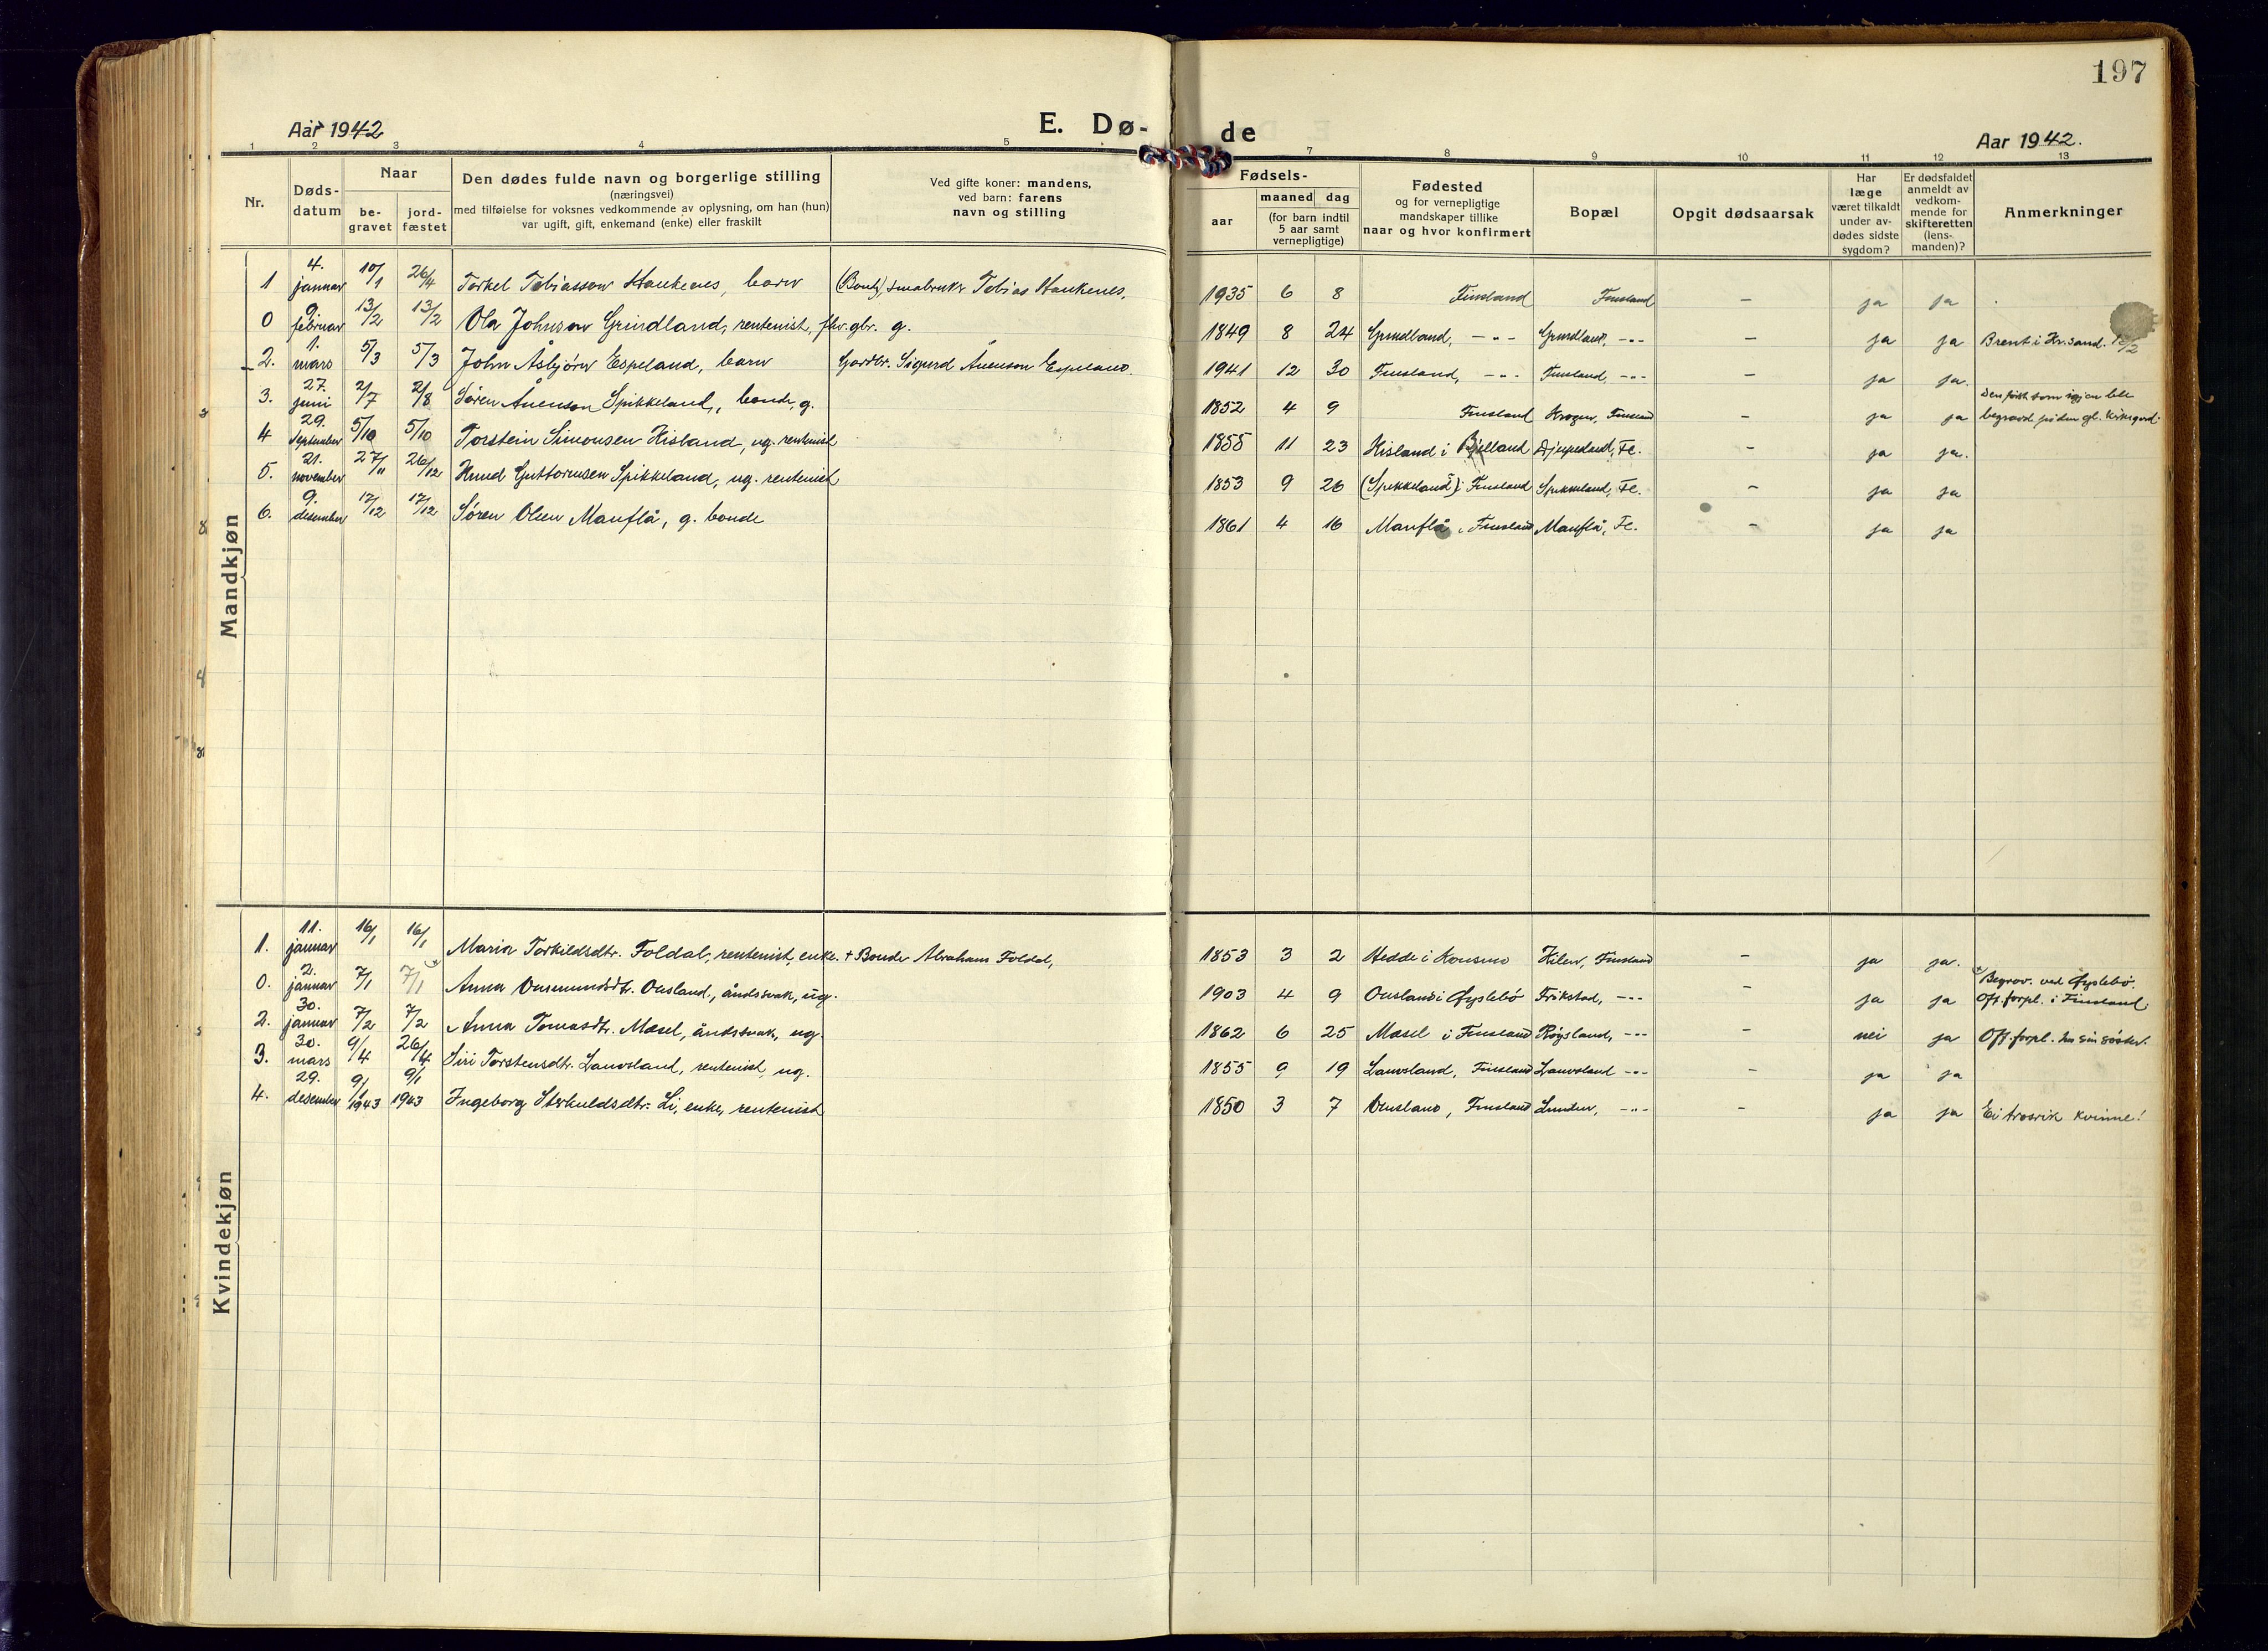 197
Aar 1942
E. Dø-
de
Aar 1942.
1 2 3 4 5 7 8 9 10 11 12 13
Nr.
Døds-
datum
Naar
be-
gravet
jord-
fæstet
Den dødes fulde navn og borgerlige stilling
(næringsvei)
med tilføielse for voksnes vedkommende av oplysning, om han (hun)
var ugift, gift, enkemand (enke) eller fraskilt
Ved gifte koner: mandens,
ved barn: farens
navn og stilling
Fødsels-
aar
maaned dag
(for barn indtil
5 aar samt
vernepligtige)
Fødested
og for vernepligtige
mandskaper tillike
naar og hvor konfirmert
Bopæl
Opgit dødsaarsak
Har
læge
været tilkaldt
under av-
dødes sidste
sygdom?
Er dødsfaldet
anmeldt av
vedkom-
mende for
skifteretten
(lens-
manden)?
Anmerkninger
Mandkjøn
1 4. januar 10/1 26/4 Torkel Tobiasson Haukenes, barn småbrukr Tobias Haukenes, 1935 6 8 Finsland Finsland — ja ja
0 9. februar 13/2 13/2 Ola Johnson Grindland, rentenist, fhv. gbr. g. 1849 8 24 Grindland, -"- Grindland, -"- — ja ja Brent i Kr.sand. 13/2
2. 1. mars 5/3 5/3 John Åsbjørn Espeland, barn Gardbr. Sigurd Ånenson Espeland. 1941 12 30 Finsland, -"- Finsland, -"- — ja ja.
3. 27. juni 2/7 2/8 Søren Ånenson Spikkeland, bonde, g. 1852 4 9 Finsland Krogen, Finsland — ja ja Den fyrste som igjen ble
begravd på den gl. kirkegard.
4 29. september 5/10 5/10 Torstein Simonsen Hisland, ug. rentenist 1855 11 23 Hisland i Bjelland Djupesland, Fe. — ja ja.
5. 21. november 27/11 26/12 Knud Guttormsen Spikkeland, ug. rentenist 1853 9 26 (Spikkeland) i Finsland Spikkeland, Fe. — ja ja
6. 9. desember 17/12 17/12 Søren Olsen Mauflå, g. bonde 1861 4 16 Mauflå, Finsland Mauflå, Fe. — ja ja
Kvindekjøn
1. 11. januar 16/1 16/1 Maria Torkildsdtr. Foldal, rentenist, enke. + Bonde Abraham Foldal, 1853 3 2 Hedde i Konsmo Kilen, Finsland — ja ja.
0. 2. januar 7/1 7/1 Anna Ousmundsdtr. Ousland, åndssvak, ug. 1903 4 9 Ousland i Øyslebø Frikstad, -"- — ja ja Begrav. ved Øyslebø.
Off. forpl. i Finsland.
2. 30. januar 7/2 7/2 Anna Tomasdtr. Mæsel, åndssvak, ug. 1862 6 25 Mæsel i Finsland Røysland, -"- — nei ja Off. forpl. hos sin søster.
3. 30. mars 9/4 26/4 Siri Torstensdtr. Lauvsland, rentenist, ug. 1855 9 19 Lauvsland, Finsland Lauvsland -"- — ja ja
4. 29. desember 9/1 1943 9/1 1943 Ingeborg Sterkuldsdtr. Li, enke, rentenist 1850 3 7 Ousland, Finsland Lunden, -"- — ja ja Ei trosrik kvinne!